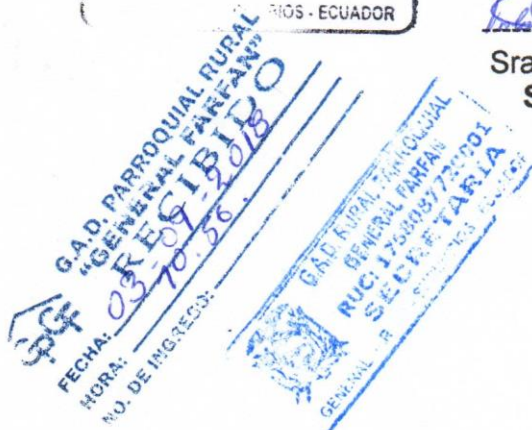 ECUADOR
Sra
G.A.D. PARROQUIAL RURAL
"GENERAL FARFAN"
RECIBIDO
FECHA: 03-09-2018
HORA: 10:56
NO. DE INGRESO:
G.A.D. RURAL PARROQUIAL
GENERAL FARFAN
RUC:
SECRETARIA
GENERAL